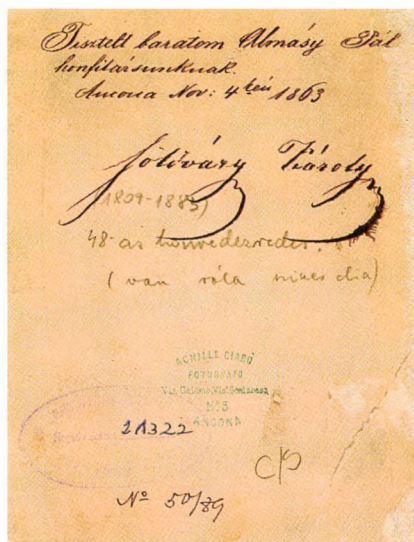 Tisztelt baratom Almásy Pál
honfitársunknak.
Ancona Nov: 4ken 1863
Károly
(1809-1885)
48-as honvédezredes.
(van róla nincs dia)
ACHILLE CIARO
FOTOGRAFO
N° 5
ANCONA
21322
C/D
N° 50/89